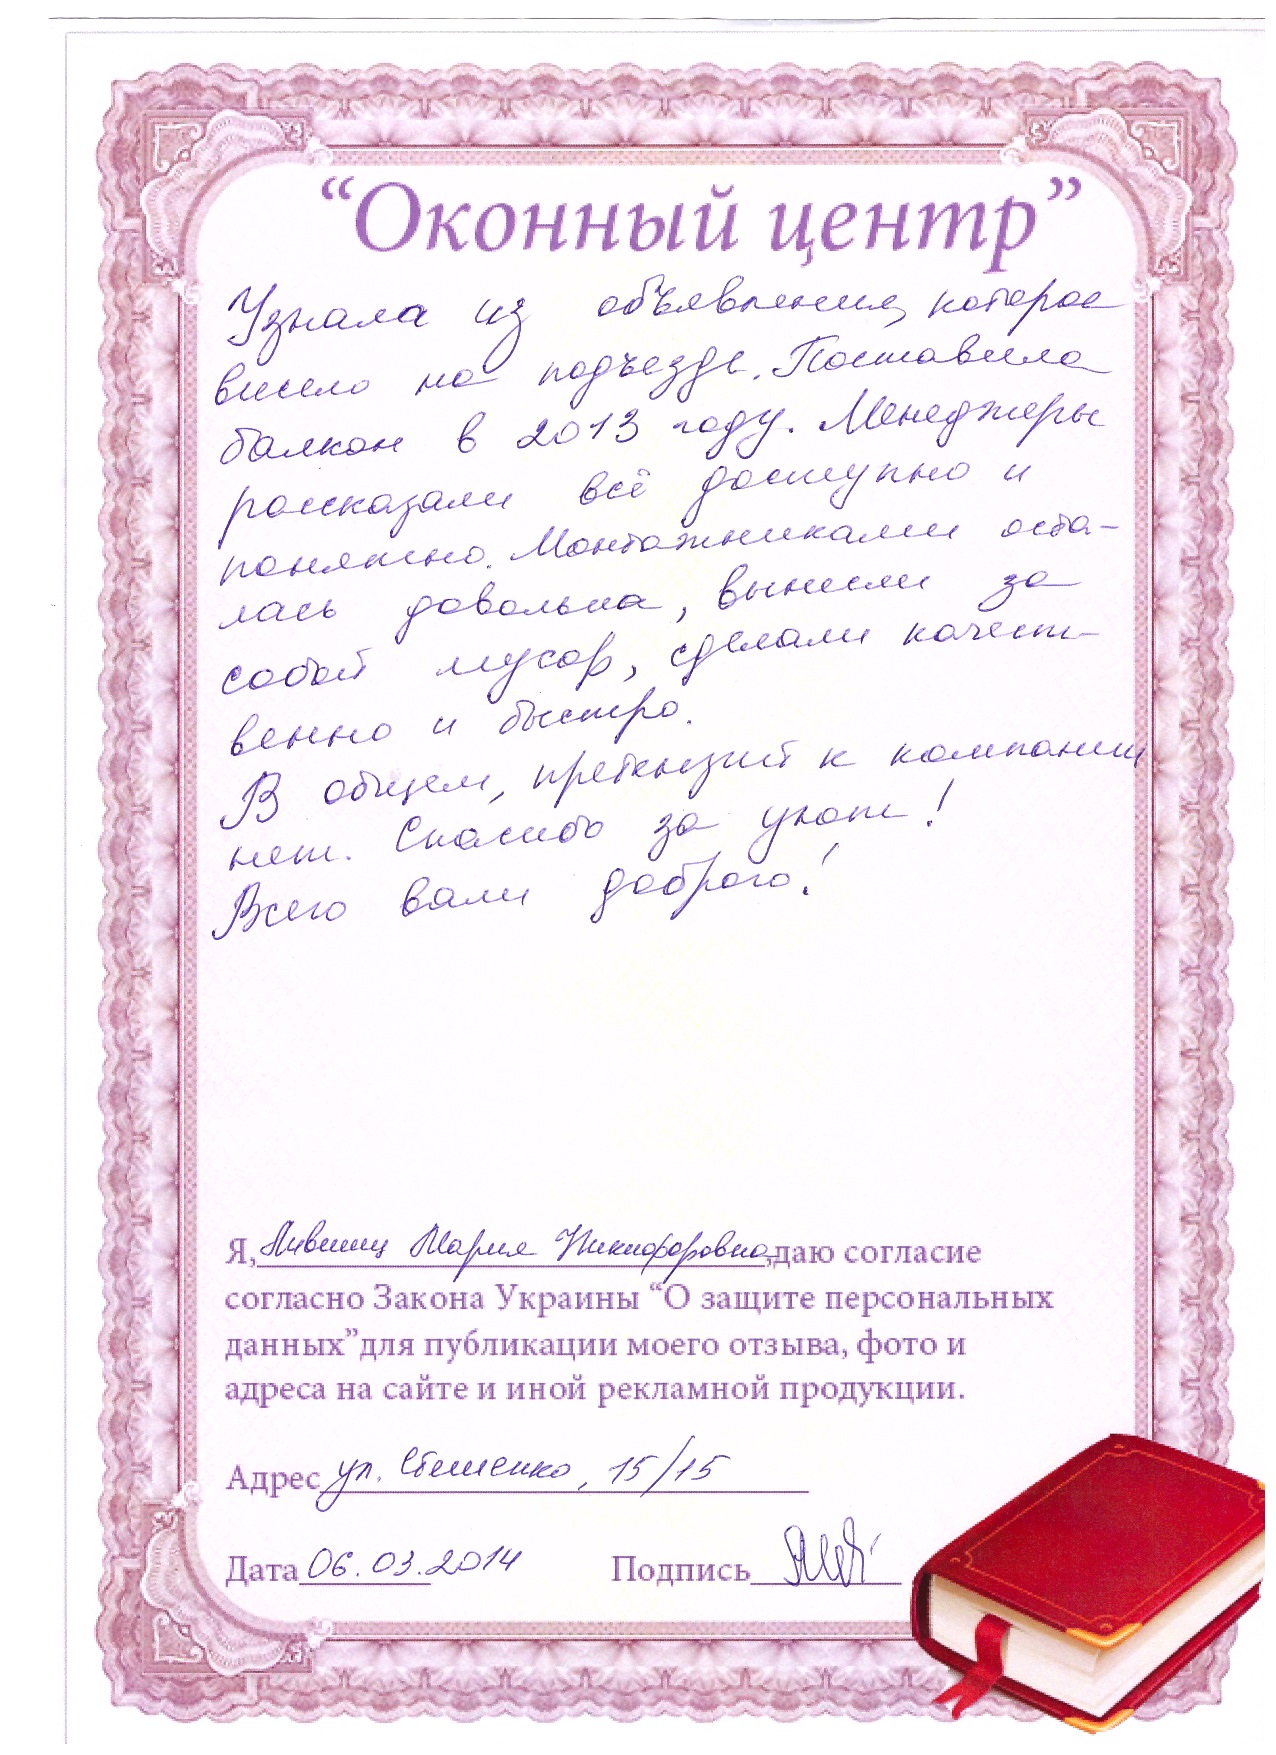 “Оконный центр”
Узнала из объявления, которое
висело на подъезде. Поставила
балкон в 2013 году. Менеджеры
рассказали всё доступно и
понятно. Монтажниками оста-
лась довольна, вынесли за
собой мусор, сделали качест-
венно и быстро.
В общем, претензий к компании
нет. Спасибо за уют!
Всего вам доброго!
Я, Лившиц Мария Никифоровна, даю согласие
согласно Закона Украины “О защите персональных
данных”для публикации моего отзыва, фото и
адреса на сайте и иной рекламной продукции.
Адрес ул. 15/15
Дата 06.03.2014 Подпись